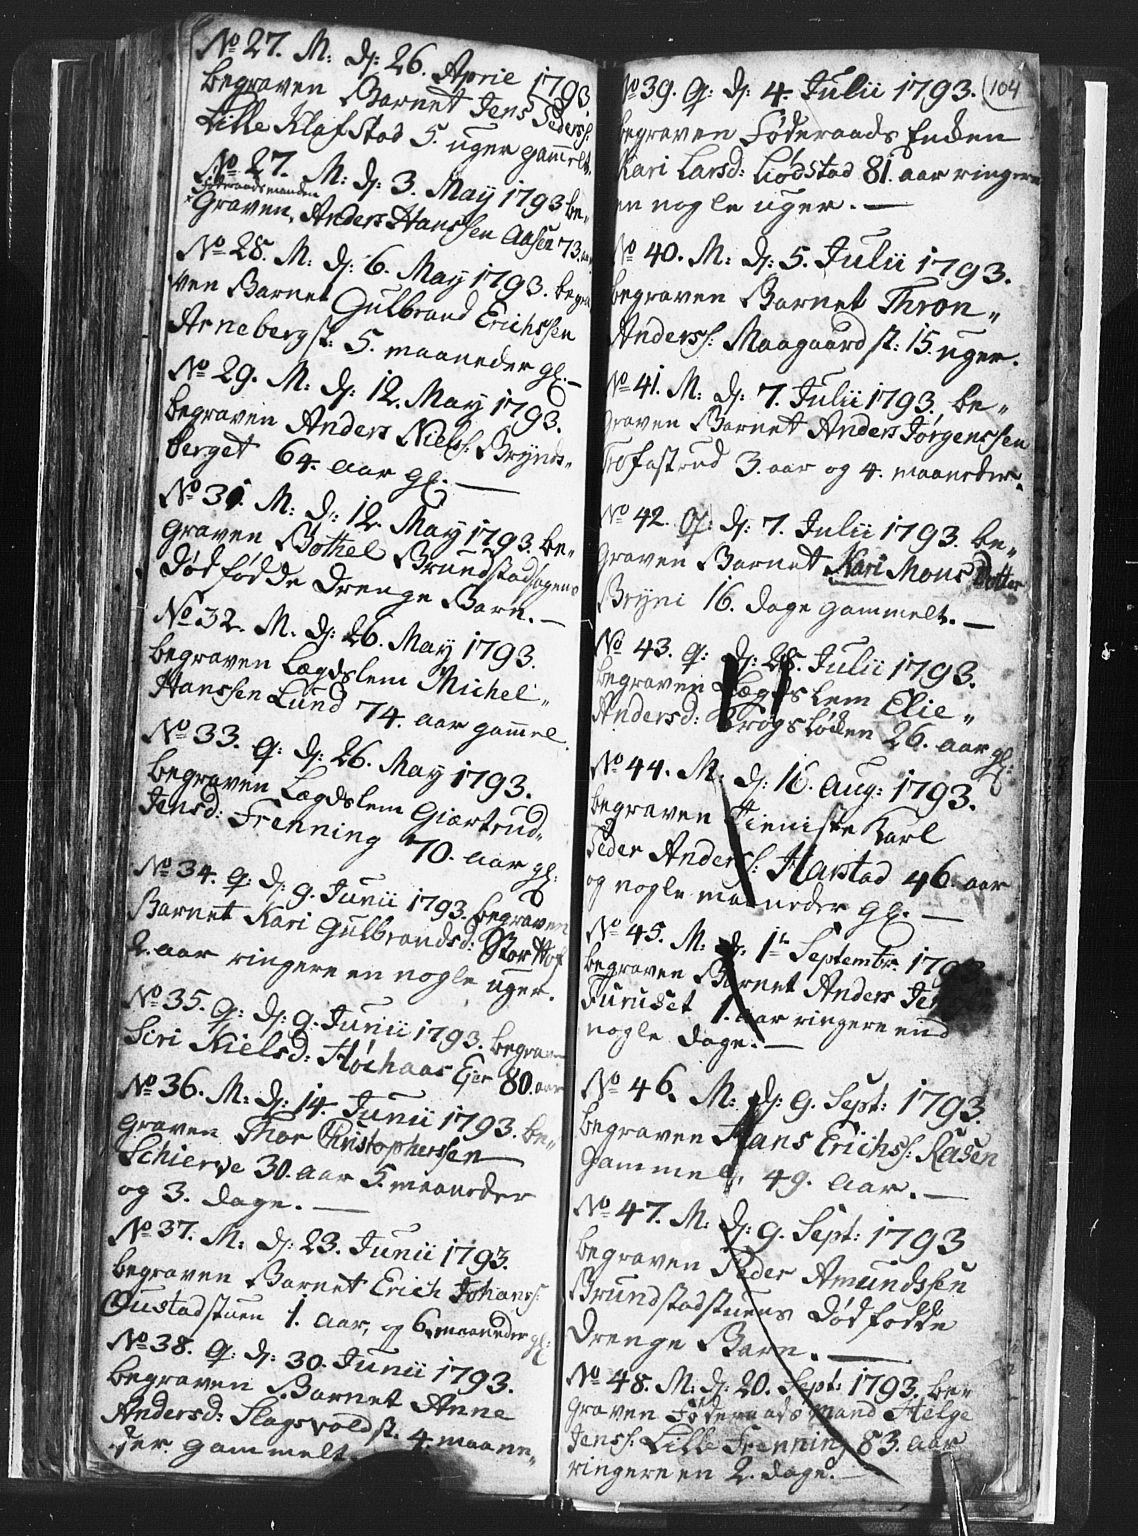 No 27. M: d: 26. Aprie 1793
begraven Barnet Jens Peders:
Lille Klafstad 5. uger gammelt.
No 27. M: d: 3. May 1793 be„
Føderaadsmanden
Graven, Anders Hanssen Aasen 73.
No 28. M: d: 6. May 1793. begra
ven Barnet Gulbrand Erichssen
Arneberg st: 5. maaneder gl. —
No 29. M: d: 12. May 1793.
begraven Anders Niels: Brÿnis„
berget 64. aar gl. —
No 31. M: d: 12 May 1793. be„
graven Bottel Brundstadhagens
dødfødde Drenge Barn. —
No 32. M. d: 26. May 1793.
begraven Lægdslem Michel„
Hanssen Lund 74. aar gammel.
No 33. Q: d: 26. May 1793.
begraven Lægdslem Giærtrud„
Jensd: Frenning 70. aar gl:
No 34. Q: d: 9. Junii 1793. begraven
Barnet Kari Gulbrandsd: Stor Hof
2. aar ringere en nogle uger.
No 35. Q: d: 9. Junii 1793. begraven
Siri Nielsd: Høihaas Eier 80. aar
No 36. M: d: 14. Junii 1793. be„
graven Thor Christophersen
Schierve 30. aar 5. maaneder
og 3. dage. —
No 37. M: d: 23. Junii 1793.
begraven Barnet Erich Johans:
Gustadstuen 1. aar, og 6. maaneder gl:
No 38. Q: d: 30. Junii 1793.
begraven Barnet Anne
Andersd: Slagsvold st. 4. maane„
der gammelt.
104
No 39. Q: d: 4. Julii 1793.
begraven Føderaads Enken
Kari Larsd: Lødstad 81. aar ringere
en nogle uger. —
No 40. M: d: 5. Julii 1793.
begraven Barnet Thron„
Anders: Maagaard st: 15. uger.
No 41. M. d: 7. Julii 1793. be„
graven Barnet Anders Jørgenssen
Tofastrud 3. aar og 4. maaneder.
No 42. Q: d: 7. Julii 1793. be„
graven Barnet Kari Mons Dotter
Bryni 16. dage gammelt. —
No 43. Q: d: 28. Julii 1793.
begraven Lægdslem Elie„
Andersd: Krogsløkken 26. aar gl:
No 44. M. d: 16. Aug: 1793.
begraven Tieniste Karl
Peder Anders: Harstad 46. aar
og nogle maaneder gl. —
No 45. M: d. 1te Septembr. 1793.
begraven Barnet Anders Jens
Furuset 1. aar ringere end
nogle dage. —
No 46. M: d: 9. Sept: 1793.
begraven Hans Erichs: Raasen
gammel, 49. aar. —
No 47. M: d: 9. Sept: 1793
begraven Peder Amundssen
Brundstadstuens dødfødde
drenge Barn. —
No 48. M: d: 20. Sept: 1793. be„
graven Føderaads Mand Helge
Jens: Lille Frenning 83. aar
ringere en 2. dage. —